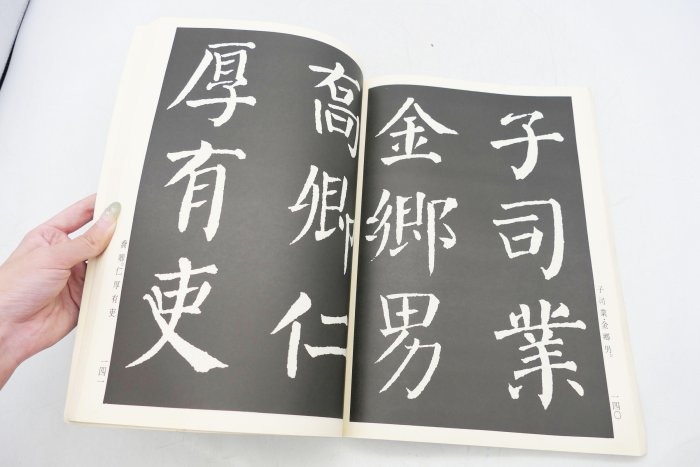 子司業
金鄉男
子司業金鄉男。
一四〇
喬卿仁
厚有吏
喬卿。仁厚有吏
一四一